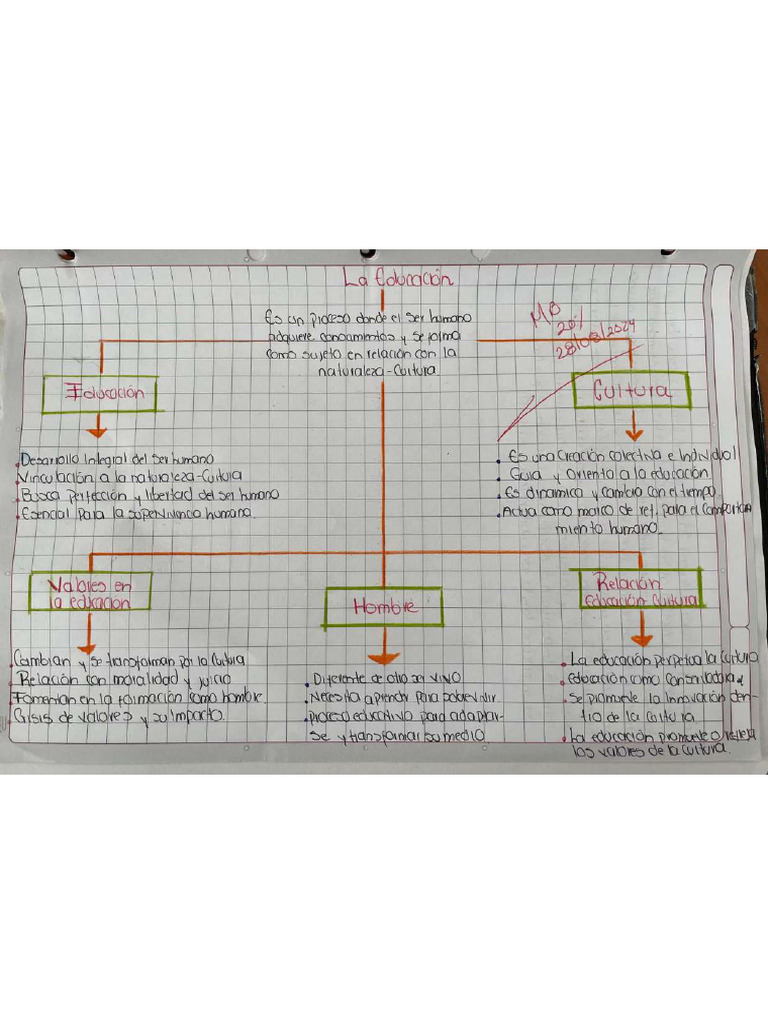 La Educación
Es un proceso donde el ser humano
adquiere conocimientos y se forma
como sujeto en relación con la
naturaleza-Cultura
MB
20%
28/08/2024
Educación
Desarrollo Integral del ser humano
Vinculación a la naturaleza-Cultura
Busca perfección y libertad del ser humano
Esencial para la supervivencia humana.
Cultura
Es una creación colectiva e Individual
Guia y Orienta a la educación
Es dinamica y cambia con el tiempo
Actua como marco de ref, para el comporta
miento humano.
Valores en
la educación
Cambian y se transforman por la Cultura
Relación con moralidad y juicio
Fomentan en la formación como hombre
Crisis de valores y su impacto.
Hombre
Diferente de otro ser vivo
Necesita aprender para sobrevivir.
proceso educativo para adaptar-
se y transformar su medio
Relación
Educación-Cultura
La educación perpetua la Cultura
Educación como conservadora
se promueve la Innovación den-
tro de la Cultura
La educación promueve o refleja
los valores de la cultura.